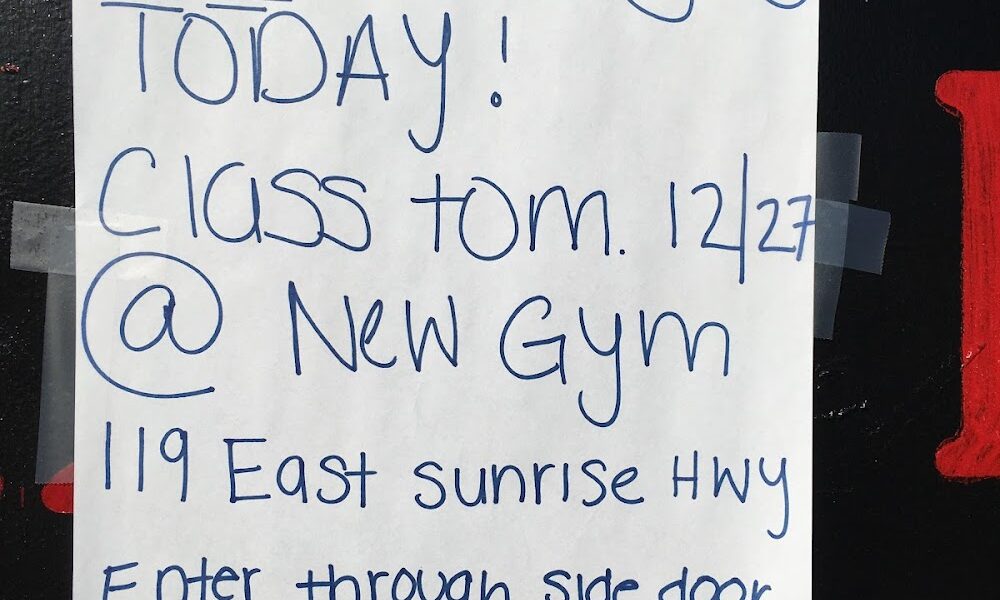 TODAY!
Class tom. 12/27
@ New Gym
119 East sunrise Hwy
Enter through side door